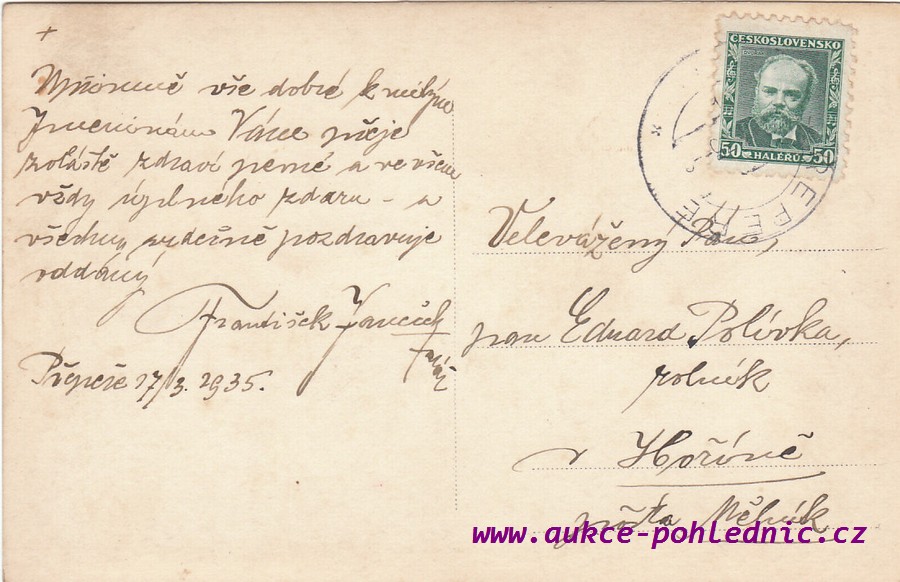 +
Upřímně vše dobré k milým
Jmeninám Vám přeje
zvláště zdraví pevné a ve všem
vždy úplného zdaru - a
všechny srdečně pozdravuje
oddaný
František
farář
17/3. 1935.
ČESKOSLOVENSKO
50 HALÉŘŮ 50
Velevážený Pan,
pan Eduard Polívka,
rolník
v Hoříně
pošta Mělník
www.aukce-pohlednic.cz